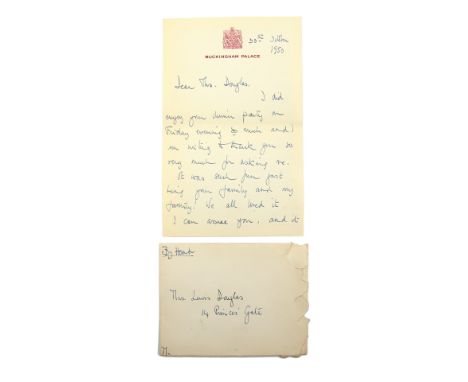 30th October
1950
BUCKINGHAM PALACE
Dear Mrs. Douglas.
I did
enjoy your dinner party on
Friday evening so much and I
am writing to thank you so
very much for asking me.
It was such fun just
being your family and my
family. We all loved it
I can assure you, and it
By Hand
Mrs Lewis Douglas
14 Princes' Gate
M.